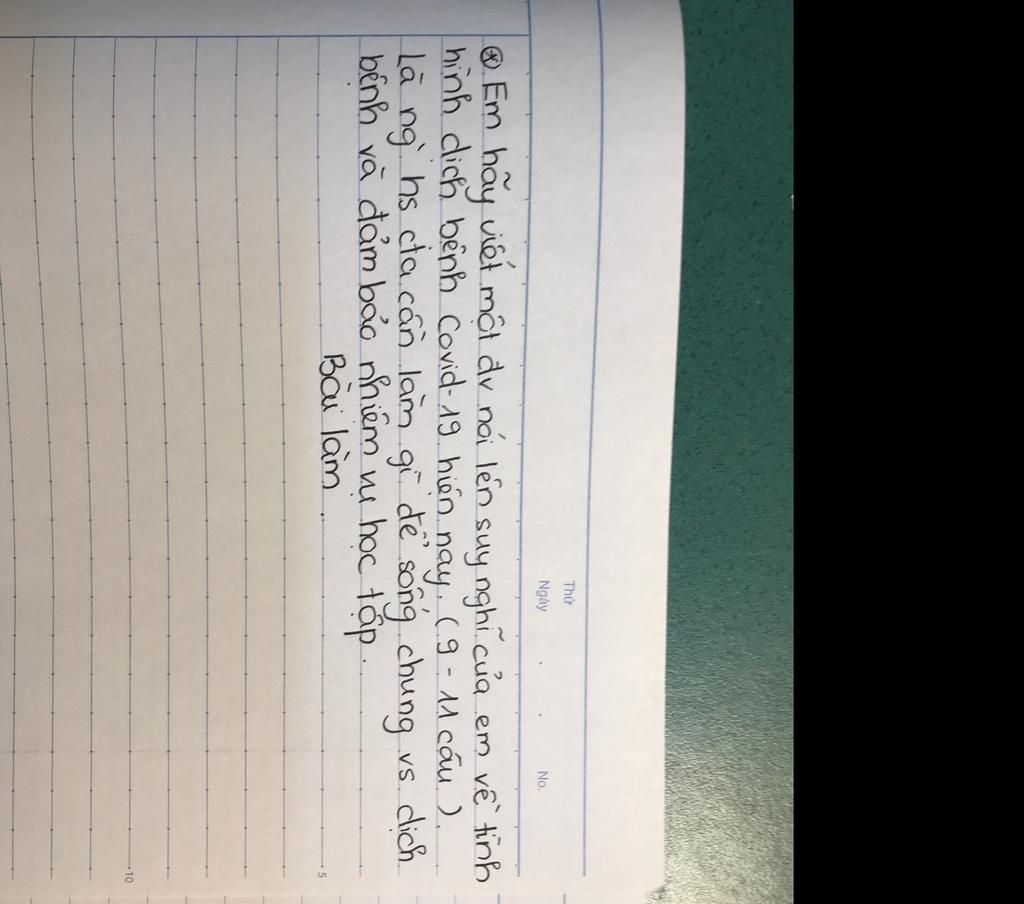 Thứ
Ngày . . No.
⊛ Em hãy viết một đv nói lên suy nghĩ của em về tình
hình dịch bệnh Covid-19 hiện nay. (9-11 câu).
Là ng` hs cta cần làm gì để sống chung vs dịch
bệnh và đảm bảo nhiệm vụ học tập.
Bài làm.
5
10